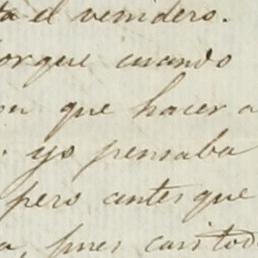 ta el venidero.
orque cuando
que hacer a
yo pensaba
pero antes que
a, pues casi tod